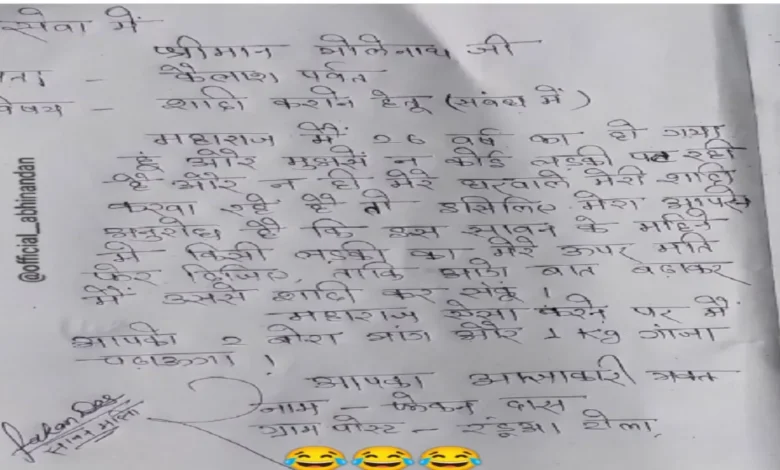 सेवा में
श्रीमान भोलेनाथ जी
पता - कैलाश पर्वत
विषय - शादी कराने हेतू (संबंध में)
महाराज मैं 26 वर्ष का हो गया
हूं और मुझसें न कोई लड़की पट रही
है और न ही मेरे घरवाले मेरी शादि
करवा रहे है तो इसिलिए मेरा आपसे
अनुरोध है कि इस सावन के महिने
में किसी लड़की का मेरे ऊपर मति
फेर दिजिए, ताकि आगे बात बढ़ाकर
मैं उससे शादी कर सकूं।
महाराज ऐसा करने पर मैं
आपको 2 बोरा भांग और 1 Kg गांजा
चढ़ाऊंगा !
आपका आज्ञाकारी भक्त
नाम - फेकन दास
ग्राम पोस्ट - रंडुआ टोला,
@official_abhinandan